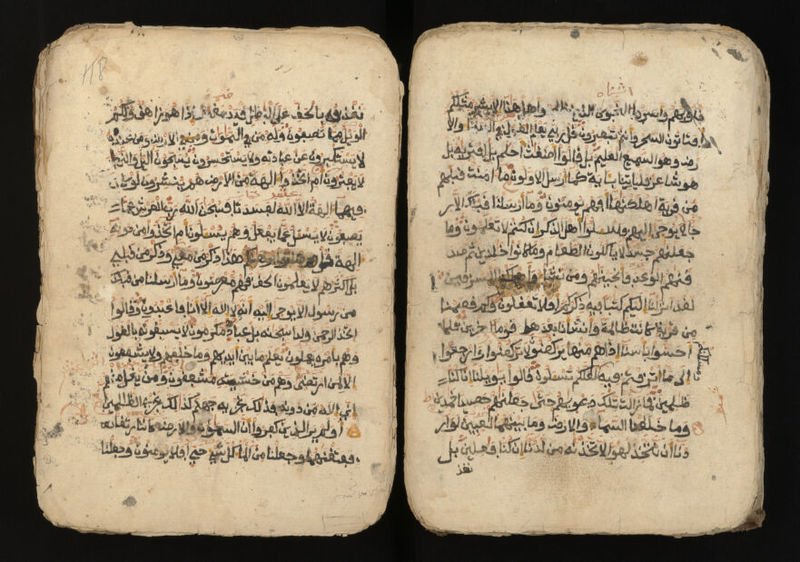 قلوبهم واسروا النجوى الذين هل هذا الا بشر مثلكم
افتاتون السحر وانتم تبصرون قل ربي يعلم القول في السماء والا
رض وهو السميع العليم بل قالوا اضغث احلم بل افتريه بل
هو شاعر فلياتنا باية كما ارسل الاولون ما امنت قبلهم
من قرية اهلكنها افهم يومنون وما ارسلنا قبلك الا ر
جالا يوحى اليهم فسلوا اهل الذكر ان كنتم لا تعلمون وما
جعلنهم جسدا لا ياكلون الطعام وما كانوا خلدين ثم صد
قنهم الوعد فانجينهم ومن نشاء واهلكنا المسرفين
لقد انزلنا اليكم كتبا فيه ذكركم افلا تعقلون وكم قصمنا
من قرية كانت ظالمة وانشانا بعدها قوما اخرين فلما
احسوا باسنا اذا هم منها يركضون لا تركضوا وارجعوا
الى ما اترفتم فيه لعلكم تسلون قالوا يويلنا انا كنا
ظلمين فما زالت تلك دعويهم حتى جعلنهم حصيدا خمدين
وما خلقنا السماء والارض وما بينهما لعبين لو ار
دنا ان نتخذ لهوا لاتخذنه من لدنا ان كنا فعلين بل
نقذ
نقذف بالحق على البطل فيدمغه فاذا هو زاهق ولكم
الويل مما تصفون وله من في السموت والارض ومن عنده
لا يستكبرون عن عبادته ولا يستحسرون يسبحون اليل والنهار
لا يفترون ام اتخذوا الهة من الارض هم ينشرون لو كان
فيهما الهة الا الله لفسدتا فسبحن الله رب العرش عما
يصفون لا يسل عما يفعل وهم يسلون ام اتخذوا من دونه
الهة قل هاتوا برهنكم هذا ذكر من معي وذكر من قبلي
بل اكثرهم لا يعلمون الحق فهم معرضون وما ارسلنا من قبلك
من رسول الا يوحى اليه انه لا اله الا انا فاعبدون وقالوا
اتخذ الرحمن ولدا سبحنه بل عباد مكرمون لا يسبقونه بالقول
وهم بامره يعملون يعلم ما بين ايديهم وما خلفهم ولا يشفعون
الا لمن ارتضى وهم من خشيته مشفقون ومن يقل منهم
اني اله من دونه فذلك نجزيه جهنم كذلك نجزي الظلمين
اولم ير الذين كفروا ان السموت والارض كانتا رتقا
ففتقنهما وجعلنا من الماء كل شيء حي افلا يومنون وجعلنا